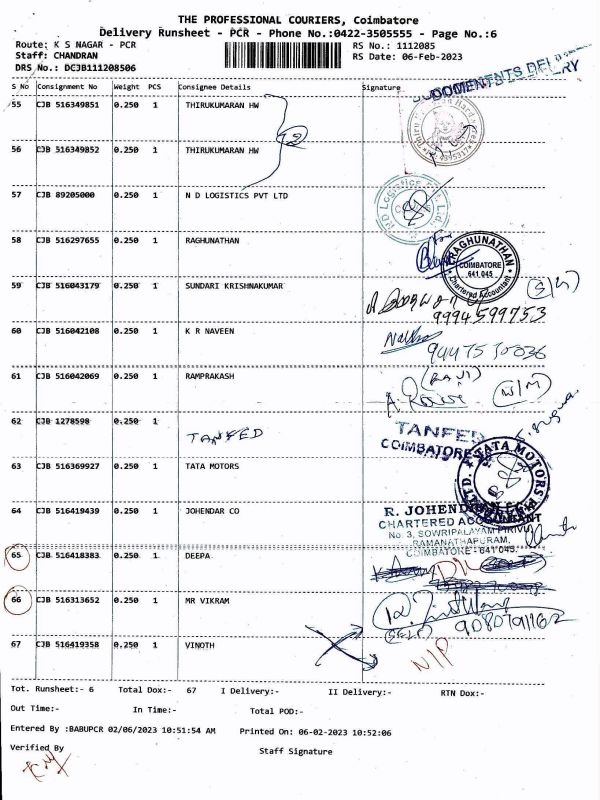 THE PROFESSIONAL COURIERS, Coimbatore
Delivery Runsheet - PCR - Phone No.:0422-3505555 - Page No.:6
Route: K S NAGAR - PCR
RS No.: 1112085
Staff: CHANDRAN
RS Date: 06-Feb-2023
DRS No.: DCJB111208506
DOOMENTS DELIVERY
S No Consignment No Weight PCS Consignee Details Signature
55 CJB 516349851 0.250 1 THIRUKUMARAN HW
56 CJB 516349852 0.250 1 THIRUKUMARAN HW
57 CJB 89205000 0.250 1 N D LOGISTICS PVT LTD
58 CJB 516297655 0.250 1 RAGHUNATHAN
RAGHUNATHAN
COIMBATORE
641 045
Chartered Accountant
59 CJB 516043179 0.250 1 SUNDARI KRISHNAKUMAR
9994599753
60 CJB 516042108 0.250 1 K R NAVEEN
61 CJB 516042069 0.250 1 RAMPRAKASH
(RAVI)
62 CJB 1278598 0.250 1 TANFED
TANFED
COIMBATORE
63 CJB 516369927 0.250 1 TATA MOTORS
TATA MOTORS
64 CJB 516419439 0.250 1 JOHENDAR CO
R. JOHEND
CHARTERED ACCOUNTANT
No. 3, SOWRIPALAYAM PIRIVU
RAMANATHAPURAM,
COIMBATORE - 641 045.
65 CJB 516418383 0.250 1 DEEPA.
66 CJB 516313652 0.250 1 MR VIKRAM
9080791162
67 CJB 516419358 0.250 1 VINOTH
N/P
Tot. Runsheet:- 6 Total Dox:- 67 I Delivery:- II Delivery:- RTN Dox:-
Out Time:- In Time:- Total POD:-
Entered By :BABUPCR 02/06/2023 10:51:54 AM Printed On: 06-02-2023 10:52:06
Verified By
Staff Signature